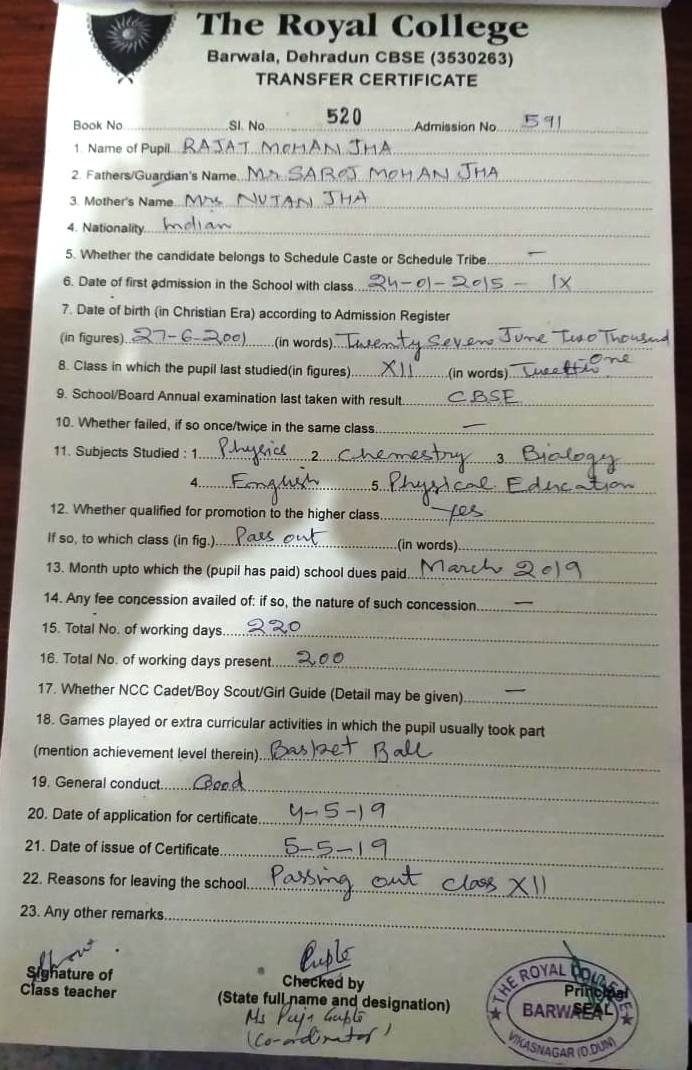 The Royal College
Barwala, Dehradun CBSE (3530263)
TRANSFER CERTIFICATE
Book No. Sl. No. 520 Admission No. 591
1. Name of Pupil RAJAT MOHAN JHA
2. Fathers/Guardian's Name Mr SAROJ MOHAN JHA
3. Mother's Name Mrs NUTAN JHA
4. Nationality Indian
5. Whether the candidate belongs to Schedule Caste or Schedule Tribe —
6. Date of first admission in the School with class 24-01-2015 - IX
7. Date of birth (in Christian Era) according to Admission Register
(in figures) 27-6-2001 (in words) Twenty Seven June Two Thousand
One
8. Class in which the pupil last studied(in figures) XII (in words)
9. School/Board Annual examination last taken with result CBSE
10. Whether failed, if so once/twice in the same class —
11. Subjects Studied : 1. Physics 2. Chemestry 3 Biology
4. English 5. Physical Education
12. Whether qualified for promotion to the higher class yes
If so, to which class (in fig.) Pass out (in words)
13. Month upto which the (pupil has paid) school dues paid March 2019
14. Any fee concession availed of: if so, the nature of such concession —
15. Total No. of working days 220
16. Total No. of working days present 200
17. Whether NCC Cadet/Boy Scout/Girl Guide (Detail may be given) —
18. Games played or extra curricular activities in which the pupil usually took part
(mention achievement level therein) Basket Ball
19. General conduct Good
20. Date of application for certificate 4-5-19
21. Date of issue of Certificate 5-5-19
22. Reasons for leaving the school Passing out class XII
23. Any other remarks
Signature of
Class teacher
Gupta
Checked by
(State full name and designation)
Ms Puja Gupta
(Co-ordinator)
Principal
SEAL
THE ROYAL COLLEGE
BARWALA
VIKASNAGAR (D.DUN)